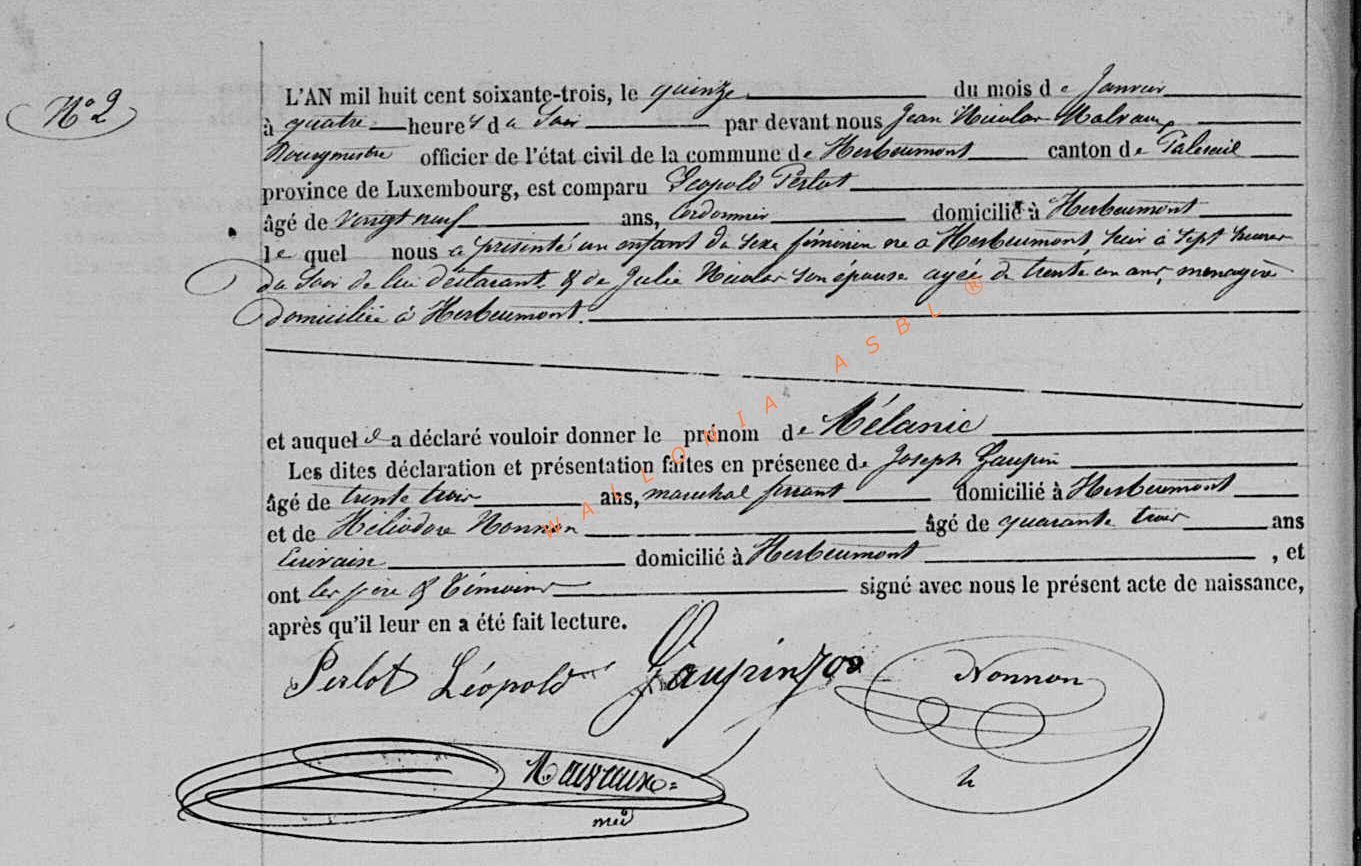 N° 2
L'AN mil huit cent soixante-trois, le quinze du mois de Janvier
à quatre heures du Soir par devant nous Jean Nicolas Malvaux
Bourgmestre officier de l'état civil de la commune de Herbeumont canton de Paliseul
province de Luxembourg, est comparu Léopold Perlot
âgé de vingt neuf ans, Cordonnier domicilié à Herbeumont
lequel nous a présenté un enfant du sexe féminin né à Herbeumont, hier à sept heures
du Soir de lui déclarant & de Julie Nicolas son épouse agée de trente un ans, menagère
domiciliée à Herbeumont.
et auquel il a déclaré vouloir donner le prénom de Mélanie
Les dites déclaration et présentation faites en présence de Joseph Gaupin
âgé de trente trois ans, marechal ferrant domicilié à Herbeumont
et de Héliodore Nonnon âgé de quarante trois ans
Ecrivain domicilié à Herbeumont, et
ont les père & témoins signé avec nous le présent acte de naissance,
après qu'il leur en a été fait lecture.
Perlot Léopold Gaupin Jos Nonnon
N. Malvaux
WALLONIA ASBL ®